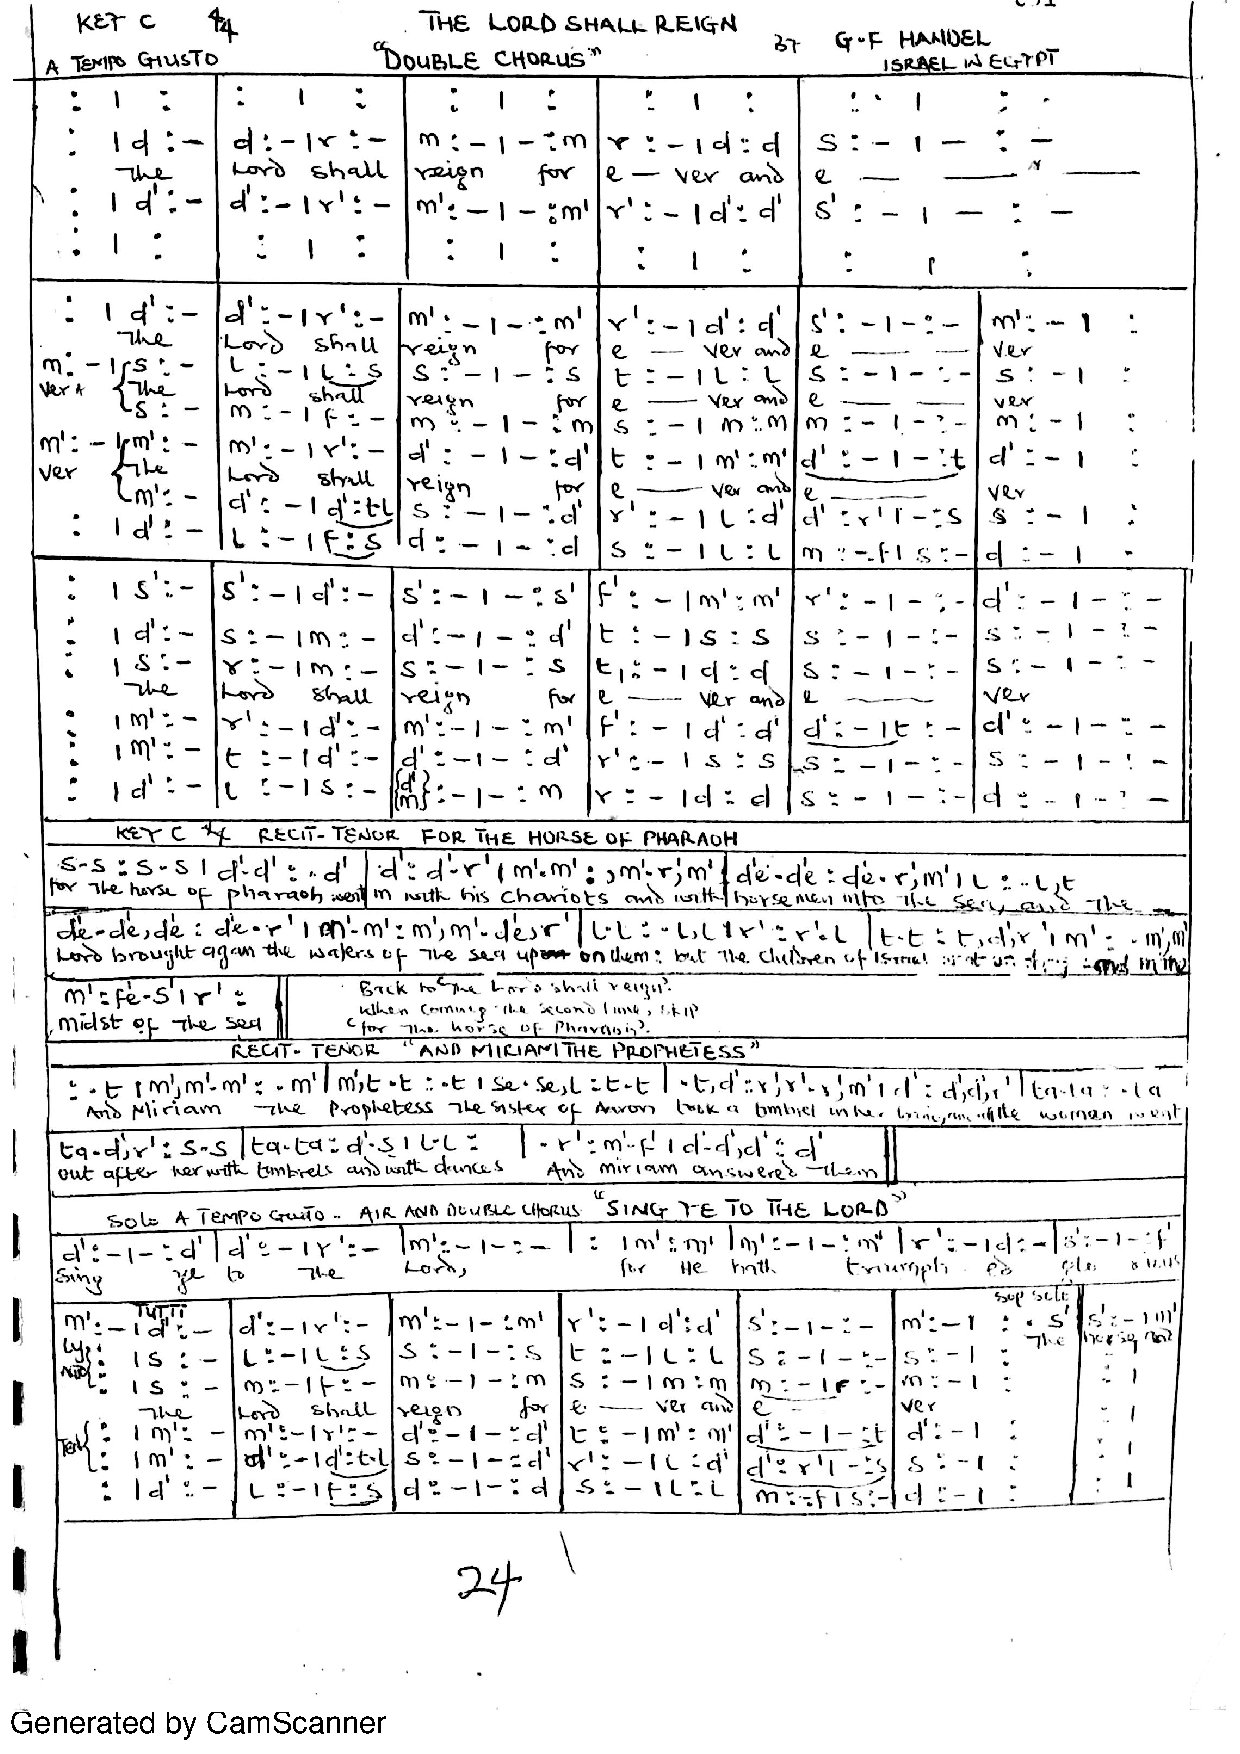 KEY C 4/4 THE LORD SHALL REIGN
BY G.F HANDEL
A TEMPO GIUSTO "DOUBLE CHORUS" ISRAEL IN EGYPT
: | : : | : : | : : | : : | :
: | d : - d : - | r : - m : - | - : m r : - | d : d s : - | - : -
The Lord shall reign for e — ver and e — — —
: | d' : - d' : - | r' : - m' : - | - : m' r' : - | d' : d' s' : - | - : -
: | : : | : : | : : | : : | :
: | d' : - d' : - | r' : - m' : - | - : m' r' : - | d' : d' s' : - | - : - m' : - | :
The Lord shall reign for e — ver and e — — ver
m : - | s : - l : - | l : s s : - | - : s t : - | l : l s : - | - : - s : - | :
ver The Lord shall reign for e — ver and e — — ver
s : - m : - | f : - m : - | - : m s : - | m : m m : - | - : - m : - | :
m' : - | m' : - m' : - | r' : - d' : - | - : d' t : - | m' : m' d' : - | - : t d' : - | :
ver The Lord shall reign for e — ver and e — ver
m' : - d' : - | d' : t l s : - | - : d' r' : - | l : d' d' : r' | - : s s : - | :
: | d' : - l : - | f : s d : - | - : d s : - | l : l m : - f | s : - d : - | :
: | s' : - s' : - | d' : - s' : - | - : s' f' : - | m' : m' r' : - | - : - d' : - | - : -
: | d' : - s : - | m : - d' : - | - : d' t : - | s : s s : - | - : - s : - | - : -
: | s : - r : - | m : - s : - | - : s t, : - | d : d s : - | - : - s : - | - : -
The Lord shall reign for e — ver and e — ver
: | m' : - r' : - | d' : - m' : - | - : m' f' : - | d' : d' d' : - | t : - d' : - | - : -
: | m' : - t : - | d' : - d' : - | - : d' r' : - | s : s s : - | - : - s : - | - : -
: | d' : - l : - | s : - {d' m} : - | - : m r : - | d : d s : - | - : - d : - | - : -
KEY C 4/4 RECIT- TENOR FOR THE HORSE OF PHARAOH
s-s : s-s | d'-d' : . d' | d' : d'-r' | m'-m' : , m'-r', m' | de'-de' : de'-r', m' | l : . l, t
for the horse of pharaoh went in with his chariots and with horsemen into the sea, and the
de'-de', de' : de'-r' | m'-m' : m', m'-de', r' | l-l : . l, l | r' : r'-l | t-t : t, d', r' | m' : . m', m'
Lord brought again the waters of the sea upon them: but the children of Israel and in the
m' : fe'-s' | r' : Back to "The Lord shall reign".
When coming the second time, skip
midst of the sea "for the horse of Pharaoh".
RECIT- TENOR "AND MIRIAM THE PROPHETESS"
: . t | m', m'-m' : . m' | m', t-t : . t | se-se, l : t-t | . t, d' : r', r'-r', m' | d' : d', d', r' | ta-ta : . ta
And Miriam the Prophetess the sister of Aaron took a timbrel in her the women went
ta-d', r' : s-s | ta-ta : d'-s | l-l : | . r' : m'-f' | d'-d', d' : d'
out after her with timbrels and with dances And miriam answered them
SOLO A TEMPO GIUSTO - AIR AND DOUBLE CHORUS "SING YE TO THE LORD"
d' : - | - : d' | d' : - | r' : - | m' : - | - : - | : | m' : m' | m' : - | - : m' | r' : - | d : - | s' : - | - : f'
Sing ye to the Lord, for He hath triumph ed glo rious
TUTTI sop solo
m' : - | d' : - d' : - | r' : - m' : - | - : m' r' : - | d' : d' s' : - | - : - m' : - | : . s' s' : - | m'
ly The horse and
: | s : - l : - | l : s s : - | - : s t : - | l : l s : - | - : - s : - | : : |
: | s : - m : - | f : - m : - | - : m s : - | m : m m : - | f : - m : - | : : |
The Lord shall reign for e — ver and e — ver
Ten { : | m' : - m' : - | r' : - d' : - | - : d' t : - | m' : m' d' : - | - : t d' : - | : : |
: | m' : - d' : - | d' : t-l s : - | - : d' r' : - | l : d' d' : r' | - : s s : - | : : |
: | d' : - l : - | f : s d : - | - : d s : - | l : l m : - f | s : - d : - | : : |
24
Generated by CamScanner